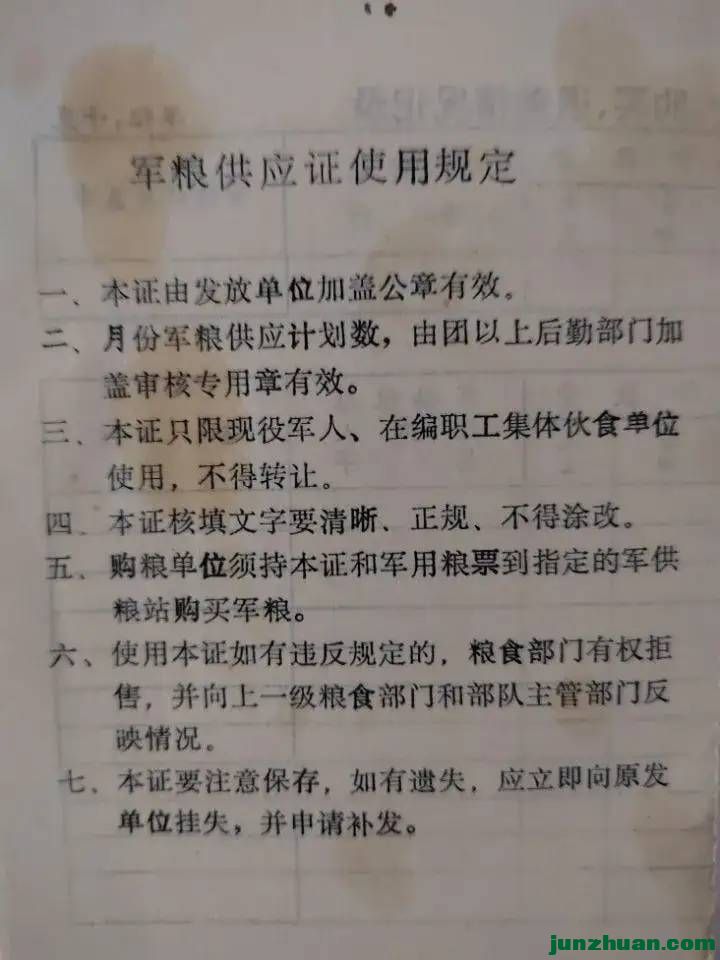 军粮供应证使用规定
一、本证由发放单位加盖公章有效。
二、月份军粮供应计划数，由团以上后勤部门加
盖审核专用章有效。
三、本证只限现役军人、在编职工集体伙食单位
使用，不得转让。
四、本证核填文字要清晰、正规、不得涂改。
五、购粮单位须持本证和军用粮票到指定的军供
粮站购买军粮。
六、使用本证如有违反规定的，粮食部门有权拒
售，并向上一级粮食部门和部队主管部门反
映情况。
七、本证要注意保存，如有遗失，应立即向原发
单位挂失，并申请补发。
junzhuan.com